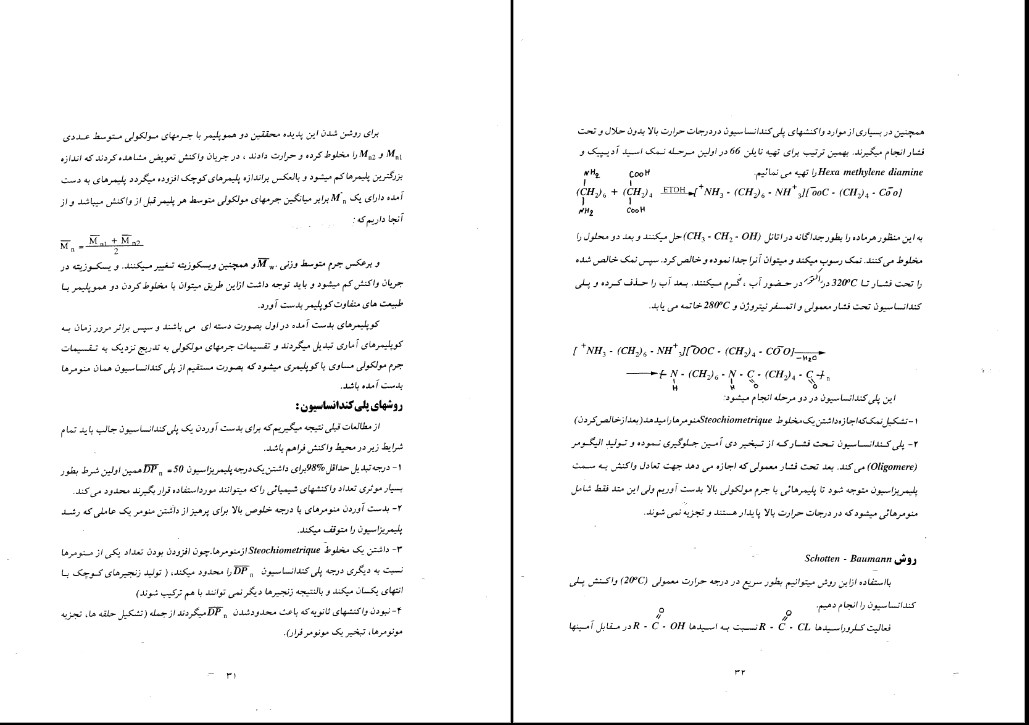 برای روشن شدن این پدیده محققین دو هموپلیمر با جرمهای مولکولی متوسط عددی
M_n1 و M_n2 را مخلوط کرده و حرارت دادند ، در جریان واکنش تعویض مشاهده کردند که اندازه
بزرگترین پلیمرها کم میشود و بالعکس براندازه پلیمرهای کوچک افزوده میگردد پلیمرهای به دست
آمده دارای یک M̅_n برابر میانگین جرمهای مولکولی متوسط هر پلیمر قبل از واکنش میباشد و از
آنجا داریم که :
M̅_n = (M̅_n1 + M̅_n2) / 2
و برعکس جرم متوسط وزنی M̅_w. و همچنین ویسکوزیته تغییر میکنند. و یسکوزیته در
جریان واکنش کم میشود و باید توجه داشت ازاین طریق میتوان با مخلوط کردن دو هموپلیمر با
طبیعت های متفاوت کوپلیمر بدست آورد.
کوپلیمرهای بدست آمده در اول بصورت دسته ای می باشند و سپس براثر مرور زمان به
کوپلیمرهای آماری تبدیل میگردند و تقسیمات جرمهای مولکولی به تدریج نزدیک به تقسیمات
جرم مولکولی مساوی با کوپلیمری میشود که بصورت مستقیم از پلی کندانساسیون همان منومرها
بدست آمده باشد.
روشهای پلی کندانساسیون :
از مطالعات قبلی نتیجه میگیریم که برای بدست آوردن یک پلی کندانساسیون جالب باید تمام
شرایط زیر در محیط واکنش فراهم باشد.
۱- درجه تبدیل حداقل 98% برای داشتن یک درجه پلیمریزاسیون D̅P̅_n = 50 همین اولین شرط بطور
بسیار موثری تعداد واکنشهای شیمیائی را که میتوانند مورداستفاده قرار بگیرند محدود می کند.
۲- بدست آوردن منومرهای با درجه خلوص بالا برای پرهیز از داشتن منومر یک عاملی که رشد
پلیمریزاسیون را متوقف میکند.
۳- داشتن یک مخلوط Steochiometrique ازمنومرها.چون افزودن بودن تعداد یکی از منومرها
نسبت به دیگری درجه پلی کندانساسیون D̅P̅_n را محدود میکند، ( تولید زنجیرهای کوچک با
انتهای یکسان میکند و بالنتیجه زنجیرها دیگر نمی توانند با هم ترکیب شوند)
۴- نبودن واکنشهای ثانویه که باعث محدودشدن D̅P̅_n میگردند از جمله (تشکیل حلقه ها، تجزیه
مونومرها، تبخیر یک مونومر فرار).
۳۱
همچنین در بسیاری از موارد واکنشهای پلی کندانساسیون در درجات حرارت بالا بدون حلال و تحت
فشار انجام میگیرند. بهمین ترتیب برای تهیه نایلن 66 در اولین مرحله نمک اسید آدیپیک و
Hexa methylene diamine را تهیه می نمائیم.
NH2 COOH
(CH2)6 + (CH2)4 ETOH→ [+NH3 - (CH2)6 - NH+3][O̅OC - (CH2)4 - CO̅O]
NH2 COOH
به این منظور هرماده را بطور جداگانه در اتانل (CH3 - CH2 - OH) حل میکنند و بعد دو محلول را
مخلوط می کنند. نمک رسوب میکند و میتوان آنرا جدا نموده و خالص کرد. سپس نمک خالص شده
را تحت فشار تا 320ºC در در حضور آب ، گرم میکنند. بعد آب را حذف کرده و پلی
کندانساسیون تحت فشار معمولی و اتمسفر نیتروژن و 280ºC خاتمه می یابد.
[ +NH3 - (CH2)6 - NH+3][O̅OC - (CH2)4 - CO̅O] →
-H2O
→ +N - (CH2)6 - N - C - (CH2)4 - C+n
H H O O
این پلی کندانساسیون در دو مرحله انجام میشود:
۱- تشکیل نمک که اجازه داشتن یک مخلوط Steochiometrique منومرها را میدهد (بعد از خالص کردن)
۲- پلی کندانساسیون تحت فشار که از تبخیر دی آمین جلوگیری نموده و تولید الیگومر
(Oligomere) می کند. بعد تحت فشار معمولی که اجازه می دهد جهت تعادل واکنش به سمت
پلیمریزاسیون متوجه شود تا پلیمرهائی با جرم مولکولی بالا بدست آوریم ولی این متد فقط شامل
منومرهائی میشود که در درجات حرارت بالا پایدار هستند و تجزیه نمی شوند.
روش Schotten - Baumann
بااستفاده ازاین روش میتوانیم بطور سریع در درجه حرارت معمولی (20ºC) واکنش پلی
کندانساسیون را انجام دهیم.
O O
فعالیت کلروراسیدها R - C - CL نسبت به اسیدها R - C - OH در مقابل آمینها
۳۲